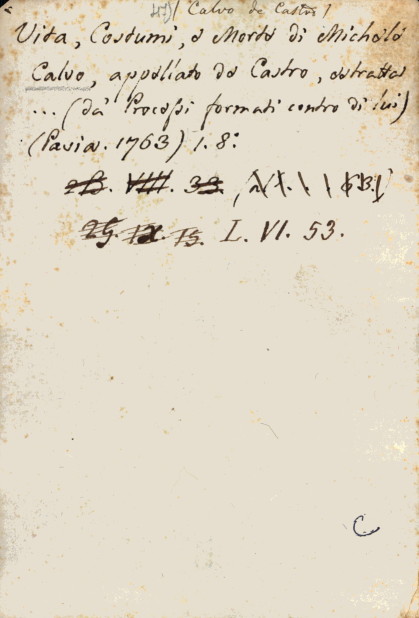 Calvo de Castro
Vita, Costumi, e Morte di Michele
Calvo, appellato de Castro, estratta
... (da' Processi formati contro di lui)
(Pavia. 1763) 1. 8°
28. VIII. 33.
29. IX. 15. L. VI. 53.
C